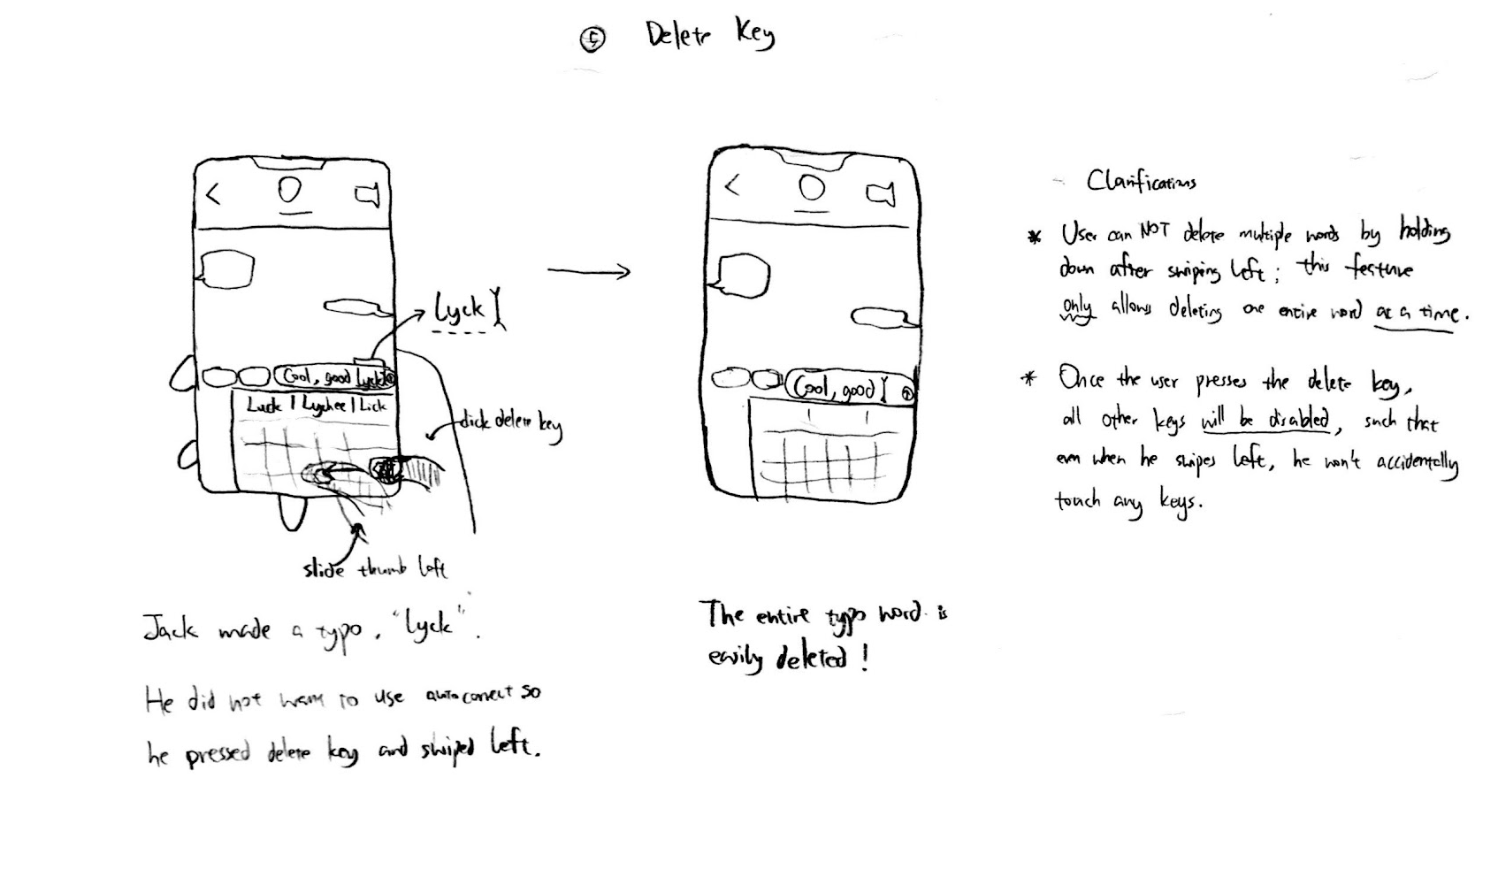 ⑤ Delete Key
Lyck
Cool, good Lyck
Luck | Lychee | Lick
click delete key
slide thumb left
Jack made a typo, "Lyck".
He did not want to use autocorrect so
he pressed delete key and swiped left.
Cool, good
The entire typo word is
easily deleted!
- Clarifications
* User can NOT delete multiple words by holding
down after swiping left; this feature
only allows deleting one entire word at a time.
* Once the user presses the delete key,
all other keys will be disabled, such that
even when he swipes left, he won't accidentally
touch any keys.